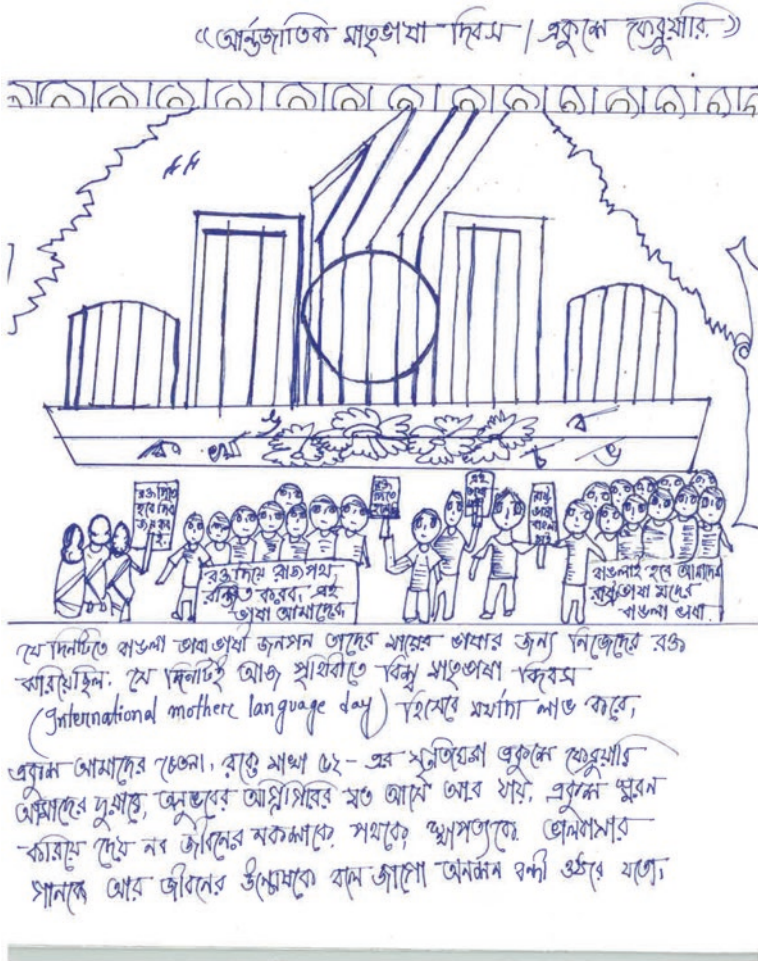 “আর্ন্তজাতিক মাতৃভাষা দিবস / একুশে ফেব্রুয়ারি”
ক খ
ব
চ ভ
রক্ত দিতে
হবে
রক্ত
দিতে
এই
ভাষা
রাষ্ট্র
ভাষা
বাংলা
রক্ত দিয়ে রাজপথ
রঞ্জিত করব, এই
ভাষা আমাদের
বাঙলাই হবে আমাদের
রাষ্ট্রভাষা মদের
বাঙলা ভাষা
যে দিনটিতে বাঙলা ভাষা ভাষী জনগন তাদের মায়ের ভাষার জন্য নিজেদের রক্ত
ঝরিয়েছিল. সে দিনটিই আজ পৃথিবীতে বিশ্ব মাতৃভাষা দিবস
(International mother language day) হিসেবে মর্যাদা লাভ করে,
একুশে আমাদের চেতনা, রক্তে মাখা ৫২- এর স্মৃতিঘেরা একুশে ফেব্রুয়ারি
আমাদের দুয়ারে, অনুভবের আগ্নিগিরির মত আসে আর যায়, একুশে স্মরন
করিয়ে দেয় নব জীবনের পথকে, স্থাপত্যকে ভালবাসার
গানকে আর জীবনের উন্মেষকে বলে জাগো অনশন বন্দী ওঠরে যতো,